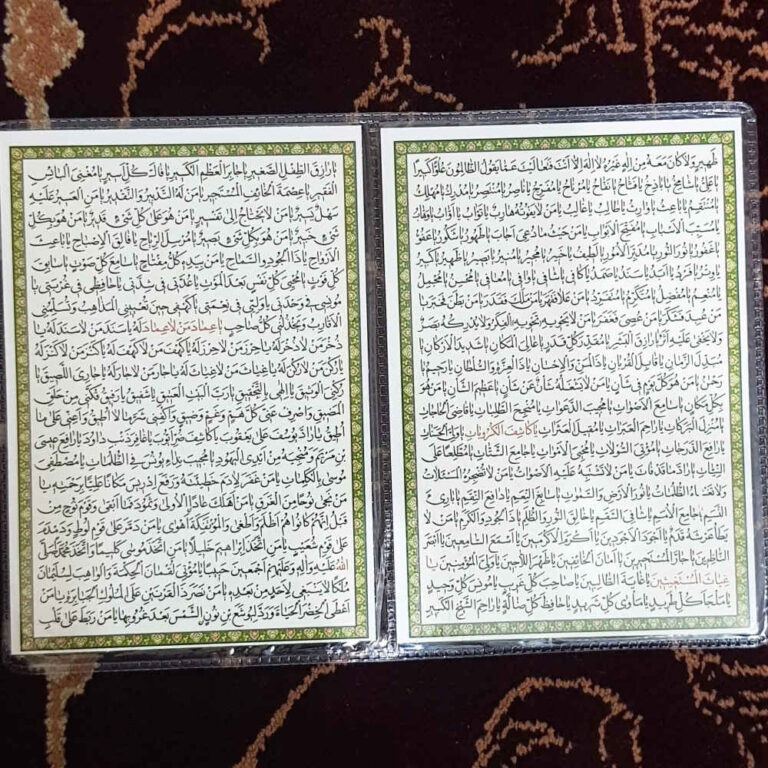 ظَهيرٍ وَلا كانَ مَعَهُ مِن اِلهٍ غَيرُهُ لا اِلهَ اِلّا اَنتَ فَتَعالَيتَ عَمّا يَقولُ الظّالِمونَ عُلُوًّا كَبيرًا
يا عَلِيُّ يا شامِخُ يا باذِخُ يا فَتّاحُ يا نَفّاحُ يا مُرتاحُ يا مُفَرِّجُ يا ناصِرُ يا مُنتَصِرُ يا مُدرِكُ يا مُهلِكُ
يا مُنتَقِمُ يا باعِثُ يا وارِثُ يا طالِبُ يا غالِبُ يا مَن لا يَفوتُهُ هارِبٌ يا تَوّابُ يا اَوّابُ يا وَهّابُ
يا مُسَبِّبَ الاَسبابِ يا مُفَتِّحَ الاَبوابِ يا مَن حَيثُ ما دُعِيَ اَجابَ يا طَهورُ يا شَكورُ يا عَفُوُّ
يا غَفورُ يا نورَ النّورِ يا مُدَبِّرَ الاُمورِ يا لَطيفُ يا خَبيرُ يا مُجيرُ يا مُنيرُ يا بَصيرُ يا ظَهيرُ يا كَبيرُ
يا وِترُ يا فَردُ يا اَبَدُ يا سَنَدُ يا صَمَدُ يا كافي يا شافي يا وافي يا مُعافي يا مُحسِنُ يا مُجمِلُ
يا مُنعِمُ يا مُفضِلُ يا مُتَكَرِّمُ يا مُتَفَرِّدُ يا مَن عَلا فَقَهَرَ يا مَن مَلَكَ فَقَدَرَ يا مَن بَطَنَ فَخَبَرَ يا
مَن عُبِدَ فَشَكَرَ يا مَن عُصِيَ فَغَفَرَ يا مَن لا يَحويهِ الفِكَرُ وَلا يُدرِكُهُ بَصَرٌ
وَلا يَخفى عَلَيهِ اَثَرٌ يا رازِقَ البَشَرِ يا مُقَدِّرَ كُلِّ قَدَرٍ يا عالِيَ المَكانِ يا شَديدَ الاَركانِ يا
مُبَدِّلَ الزَّمانِ يا قابِلَ القُربانِ يا ذَا المَنِّ وَالاِحسانِ يا ذَا العِزَّةِ وَالسُّلطانِ يا رَحيمُ يا
رَحمنُ يا مَن هُوَ كُلَّ يَومٍ في شَأنٍ يا مَن لا يَشغَلُهُ شَأنٌ عَن شَأنٍ يا عَظيمَ الشَّأنِ يا مَن هُوَ
بِكُلِّ مَكانٍ يا سامِعَ الاَصواتِ يا مُجيبَ الدَّعَواتِ يا مُنجِحَ الطَّلِباتِ يا قاضِيَ الحاجاتِ
يا مُنزِلَ البَرَكاتِ يا راحِمَ العَبَراتِ يا مُقيلَ العَثَراتِ يا كاشِفَ الكُرُباتِ يا وَلِيَّ الحَسَناتِ
يا رافِعَ الدَّرَجاتِ يا مُؤتِيَ السُّؤلاتِ يا مُحيِيَ الاَمواتِ يا جامِعَ الشَّتاتِ يا مُطَّلِعًا عَلَى
النِّيّاتِ يا رادَّ ما قَد فاتَ يا مَن لا تَشتَبِهُ عَلَيهِ الاَصواتُ يا مَن لا تُضجِرُهُ المَسئَلاتُ
وَلا تَغشاهُ الظُّلُماتُ يا نورَ الاَرضِ وَالسَّمواتِ يا سابِغَ النِّعَمِ يا دافِعَ النِّقَمِ يا بارِئَ
النَّسَمِ يا جامِعَ الاُمَمِ يا شافِيَ السَّقَمِ يا خالِقَ النّورِ وَالظُّلَمِ يا ذَا الجودِ وَالكَرَمِ يا مَن لا
يَطَأُ عَرشَهُ قَدَمٌ يا اَجوَدَ الاَجوَدينَ يا اَكرَمَ الاَكرَمينَ يا اَسمَعَ السّامِعينَ يا اَبصَرَ
النّاظِرينَ يا جارَ المُستَجيرينَ يا اَمانَ الخائِفينَ يا ظَهرَ اللّاجينَ يا وَلِيَّ المُؤمِنينَ يا
غِياثَ المُستَغيثينَ يا غايَةَ الطّالِبينَ يا صاحِبَ كُلِّ غَريبٍ يا مونِسَ كُلِّ وَحيدٍ
يا مَلجَأَ كُلِّ طَريدٍ يا مَأوى كُلِّ شَريدٍ يا حافِظَ كُلِّ ضالَّةٍ يا راحِمَ الشَّيخِ الكَبيرِ
يا رازِقَ الطِّفلِ الصَّغيرِ يا جابِرَ العَظمِ الكَسيرِ يا فاكَّ كُلِّ اَسيرٍ يا مُغنِيَ البائِسِ
الفَقيرِ يا عِصمَةَ الخائِفِ المُستَجيرِ يا مَن لَهُ التَّدبيرُ وَالتَّقديرُ يا مَنِ العَسيرُ عَلَيهِ
سَهلٌ يَسيرٌ يا مَن لا يَحتاجُ اِلى تَفسيرٍ يا مَن هُوَ عَلى كُلِّ شَيءٍ قَديرٌ يا مَن هُوَ بِكُلِّ
شَيءٍ خَبيرٌ يا مَن هُوَ بِكُلِّ شَيءٍ بَصيرٌ يا مُرسِلَ الرِّياحِ يا فالِقَ الاِصباحِ يا باعِثَ
الاَرواحِ يا ذَا الجودِ وَالسَّماحِ يا مَن بِيَدِهِ كُلُّ مِفتاحٍ يا سامِعَ كُلِّ صَوتٍ يا سابِقَ
كُلِّ فَوتٍ يا مُحيِيَ كُلِّ نَفسٍ بَعدَ المَوتِ يا عُدَّتي في شِدَّتي يا حافِظي في غُربَتي يا
مونِسي في وَحدَتي يا وَلِيّي في نِعمَتي يا كَهفي حينَ تُعيينِي المَذاهِبُ وَتُسَلِّمُنِي
الاَقارِبُ وَيَخذُلُني كُلُّ صاحِبٍ يا عِمادَ مَن لا عِمادَ لَهُ يا سَنَدَ مَن لا سَنَدَ لَهُ يا
ذُخرَ مَن لا ذُخرَ لَهُ يا حِرزَ مَن لا حِرزَ لَهُ يا كَهفَ مَن لا كَهفَ لَهُ يا كَنزَ مَن لا كَنزَ لَهُ
يا رُكنَ مَن لا رُكنَ لَهُ يا غِياثَ مَن لا غِياثَ لَهُ يا جارَ مَن لا جارَ لَهُ يا جارِيَ اللَّصيقَ يا
رُكنِيَ الوَثيقَ يا اِلهي بِالتَّحقيقِ يا رَبَّ البَيتِ العَتيقِ يا شَفيقُ يا رَفيقُ فُكَّني مِن حَلَقِ
المَضيقِ وَاصرِف عَنّي كُلَّ هَمٍّ وَغَمٍّ وَضيقٍ وَاكفِني شَرَّ ما لا اُطيقُ وَاَعِنّي عَلى ما
اُطيقُ يا رادَّ يوسُفَ عَلى يَعقوبَ يا كاشِفَ ضُرِّ اَيّوبَ يا غافِرَ ذَنبِ داوُدَ يا رافِعَ عيسَى
بنِ مَريَمَ وَمُنجِيَهُ مِن اَيدِي اليَهودِ يا مُجيبَ نِداءِ يونُسَ فِي الظُّلُماتِ يا مُصطَفِيَ
موسى بِالكَلِماتِ يا مَن غَفَرَ لِآدَمَ خَطيئَتَهُ وَرَفَعَ اِدريسَ مَكانًا عَلِيًّا بِرَحمَتِهِ يا
مَن نَجّى نوحًا مِنَ الغَرَقِ يا مَن اَهلَكَ عادًا الاُولى وَثَمودَ فَما اَبقى وَقَومَ نوحٍ مِن
قَبلُ اِنَّهُم كانوا هُم اَظلَمَ وَاَطغى وَالمُؤتَفِكَةَ اَهوى يا مَن دَمَّرَ عَلى قَومِ لوطٍ وَدَمدَمَ
عَلى قَومِ شُعَيبٍ يا مَنِ اتَّخَذَ اِبراهيمَ خَليلًا يا مَنِ اتَّخَذَ موسى كَليمًا وَاتَّخَذَ مُحَمَّدًا صَلَّى
اللهُ عَلَيهِ وَآلِهِ وَعَلَيهِم اَجمَعينَ حَبيبًا يا مُؤتِيَ لُقمانَ الحِكمَةَ وَالواهِبَ لِسُلَيمانَ
مُلكًا لا يَنبَغي لِاَحَدٍ مِن بَعدِهِ يا مَن نَصَرَ ذَا القَرنَينِ عَلَى المُلوكِ الجَبابِرَةِ يا مَن
اَعطَى الخِضرَ الحَياةَ وَرَدَّ لِيوشَعَ بنِ نونٍ الشَّمسَ بَعدَ غُروبِها يا مَن رَبَطَ عَلى قَلبِ